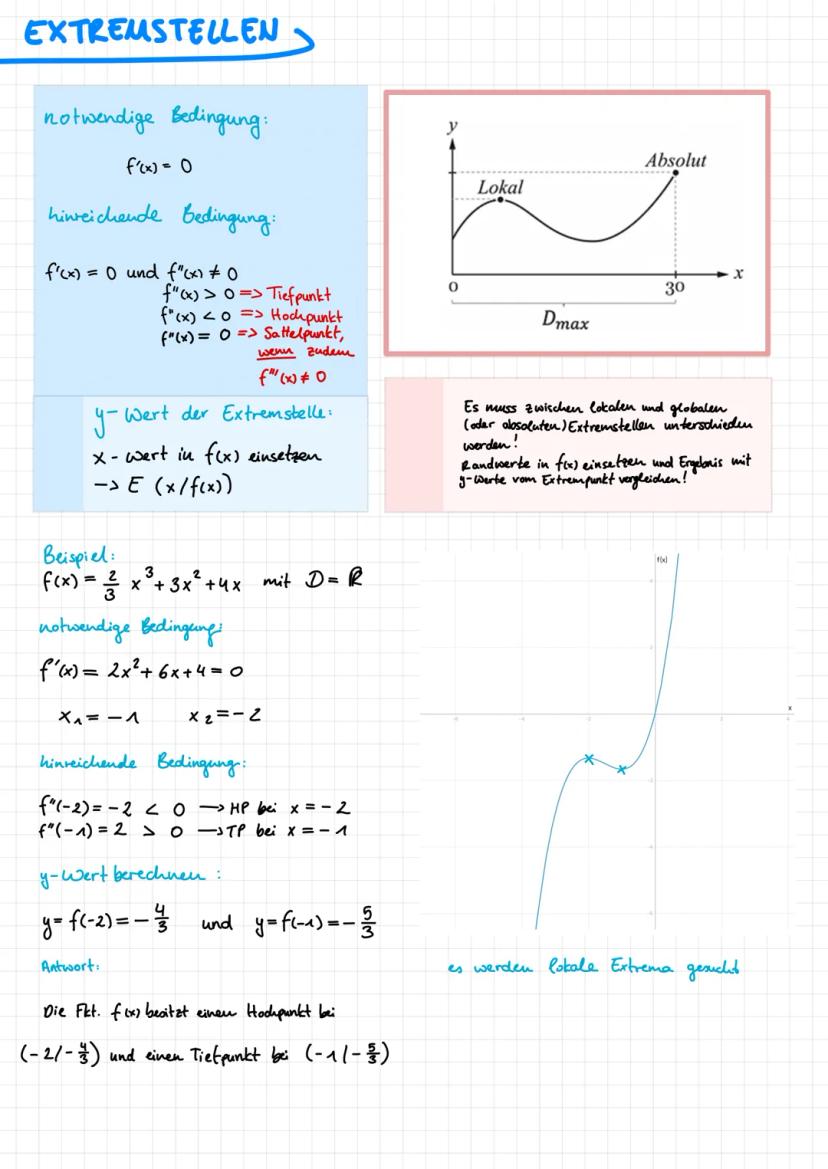 EXTREMSTELLEN
notwendige Bedingung:
f'(x) = 0
hinreichende Bedingung:
f'(x) = 0 und f''(x) ≠ 0
f''(x) > 0 => Tiefpunkt
f''(x) < 0 => Hochpunkt
f''(x) = 0 => Sattelpunkt,
wenn zudem
f'''(x) ≠ 0
y
Absolut
Lokal
x
0
30
Dmax
y-Wert der Extremstelle:
x-wert in f(x) einsetzen
-> E (x/f(x))
Es muss zwischen lokalen und globalen
(oder absoluten) Extremstellen unterschieden
werden!
Randwerte in f(x) einsetzen und Ergebnis mit
y-Werte vom Extrempunkt vergleichen!
Beispiel:
f(x) = 2/3 x³ + 3x² + 4x mit D = ℝ
notwendige Bedingung:
f'(x) = 2x² + 6x + 4 = 0
x₁ = -1 x₂ = -2
hinreichende Bedingung:
f''(-2) = -2 < 0 → HP bei x = -2
f''(-1) = 2 > 0 → TP bei x = -1
y-Wert berechnen:
y = f(-2) = -4/3 und y = f(-1) = -5/3
Antwort:
Die Fkt. f(x) besitzt einen Hochpunkt bei
(-2/-4/3) und einen Tiefpunkt bei (-1/-5/3)
f(x)
x
es werden lokale Extrema gesucht